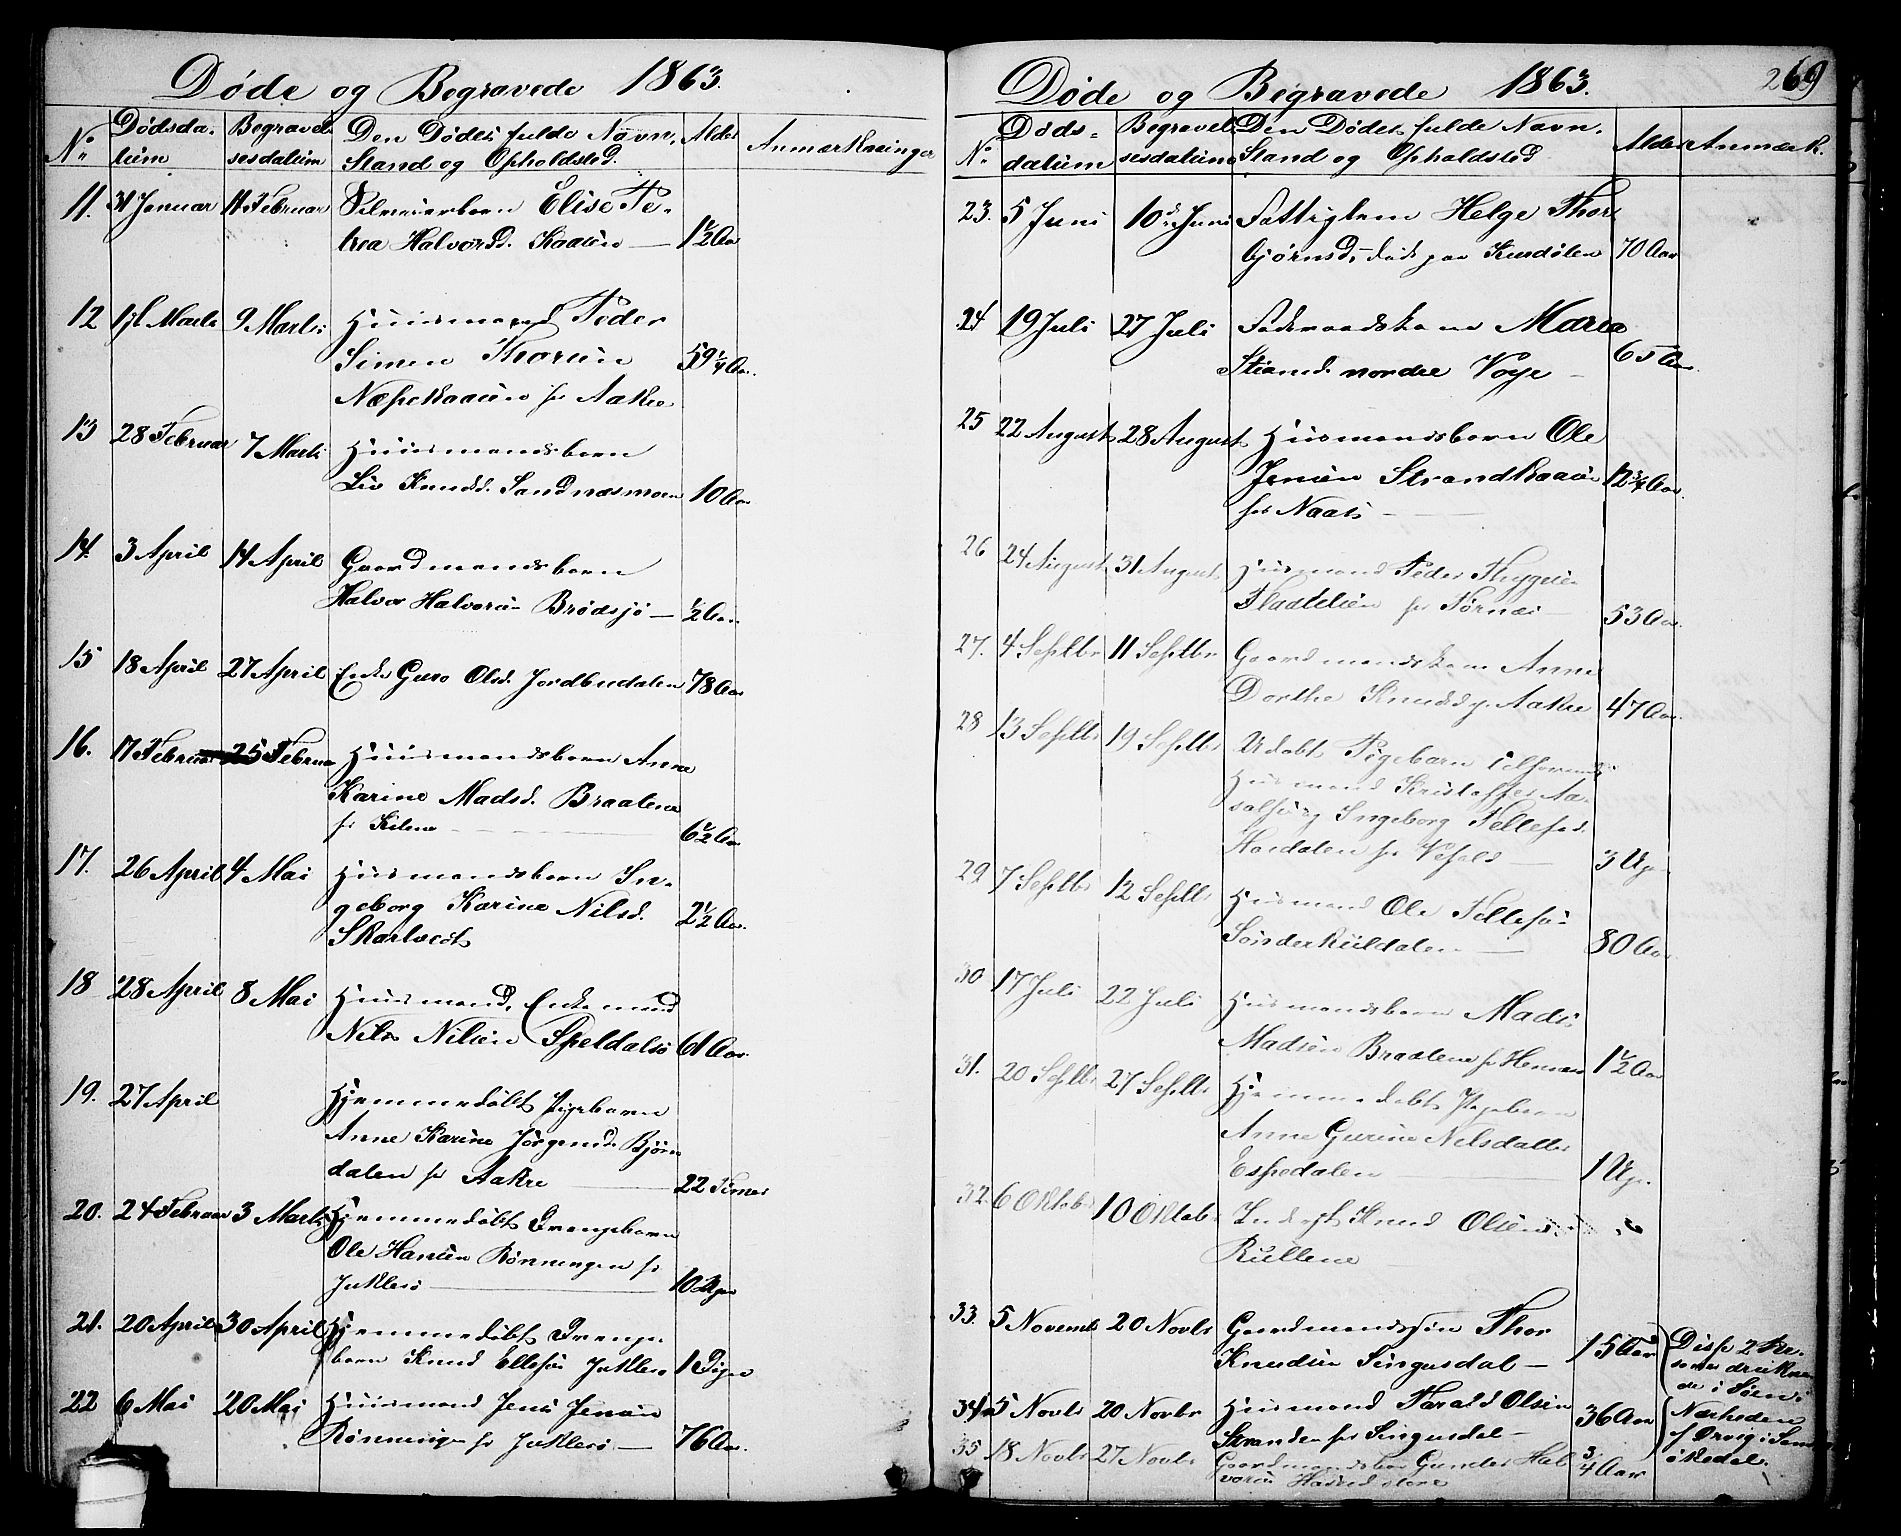 Døde og Begravede 1863.
No Dødsdatum Begravelsesdatum Den Dødes fulde Navn, Stand og Opholdsted. Alder Anmærkninger
11. 31 Januar 11 Februar Elise Pe-
trea Halvorsd. Kaasen — 1½ Aar
12 Marts 9 Marts Huusmand Peder
Simen Thorsen 59¼ Aar.
Næpekaasen fr Aakre
13 28 Februar 7 Marts Huusmandsbarn
Liv Knudsd. Sandnæsmoen 10 Aar
14. 3 April 14 April Gaardmandsbarn
Halvor Halvorsen Brødsjø — ½ Aar.
15 18 April 27 April Enke Guro Olsd. Jordbudalen 78 Aar
16. 17 Februar 25 Februar Huusmandsbarn Anne
Karine Madsd. Braatene
fr Kilene — 6½ Aar
17. 26 April 4 Mai Huusmandsbarn In-
geborg Karine Nilsd. 2½ Aar.
Skartvedt
18 28 April 8 Mai Huusmand, Enkemand
Nils Nilsen Speldalsø 61 Aar
19. 27 April Hjemmedøbt Pigebarn
Anne Karine Jørgensd. Bjørn
dalen fr Aakre — 22 Timer
20. 24 Februar 3 Marts Hjemmedøbt Drengebarn
Ole Hansen Rønningen fr
Juklerø — 10 Uger
21. 20 April 30 April Hjemmedøbt Drenge-
barn Knud Ellefsen Juklerø 1 Døgn
22 6 Mai 20 Mai Huusmand Jens Jensen
Rønningen fr Juklerø — 76 Aar.
Døde og Begravede 1863. 269
No Dødsdatum Begravelsesdatum Den Dødes fulde Navn, Stand og Opholdsted Alder Anmærk.
23. 5 Juni 10de Juni Fattiglem Helge Thor
bjørnsd, død paa 70 Aar
24 19 Juli 27 Juli Føderaadskone Maren
nordre Voje — 65 Aar
25 22 August 28 August Huusmandsbarn Ole
Jensen Strandkaasen 12¾ Aar.
fr Naas —
26 24 August 31 August Huusmand Peder Thygesen
fr Tørnæs — 53 Aar.
27. 4 Septbr 11 Septbr Gaardmandskone Anne
Dorthe Knudsd. Aakre 47 Aar.
28 13 Septbr 19 Septbr Udøbt Pigebarn
Huusmand Kristoffer Aa-
Ingeborg Tellefsd.
fr — 3 Uger
29 7 Septbr 12 Septbr Huusmand Ole Tellefsen
Sønderkuldalen — 80 Aar
30 17 Juli 22 Juli Huusmandsbarn Mads
Madsen Braatene fr 1½ Aar
31. 20 Septbr 27 Septbr Hjemmedøbt Pigebarn
Anne Gurine Nilsdatter
Espedalen — 1 Uge.
32. 6 Oktobr 10 Oktobr Knud Olsen
Kullene
33. 5 Novembr 20 Novbr Gaardmandssøn Thor
Knudsen Singusdal — 15 Aar
34 5 Novbr 20 Novbr Huusmand Tarald Olsen
Stranden fr Singusdal — 36 Aar
Disse 2 Per-
soner drukne-
de i Søen i
Nærheden
af Ørvig i San
økedal.
35 18 Novbr 27 Novbr Gaardmandsbarn Gunder Hal
vorsen store ¾ Aar